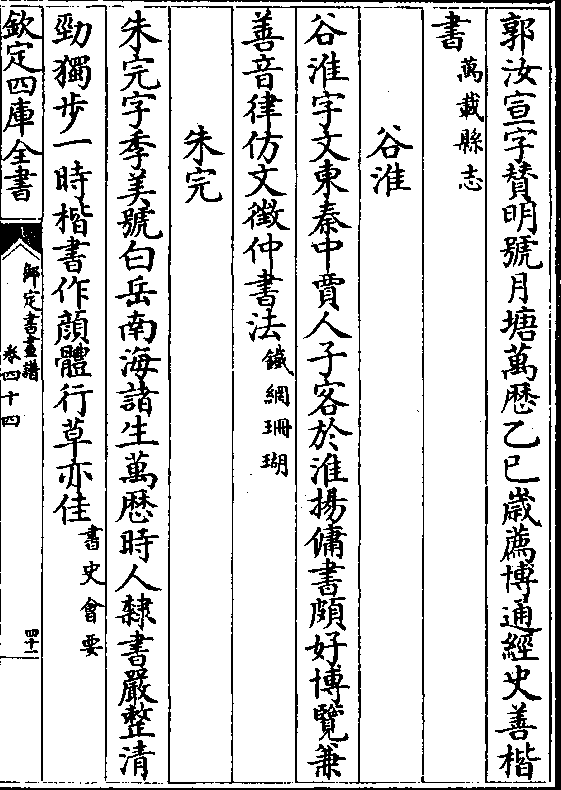 郭汝宣字賛明號月塘萬厯乙巳嵗薦博通經史善楷
書萬載縣志
谷淮
谷淮字文東秦中賈人子客於淮揚傭書頗好博覽兼
善音律仿文徵仲書法鐵網珊瑚
朱完
朱完字季美號白岳南海諸生萬厯時人隸書嚴整清
勁獨步一時楷書作顔體行草亦佳書史會要
欽定四庫全書
御定書畫譜
卷四十四
四十一